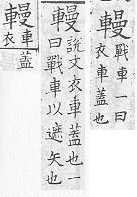 䡬戰車一曰
衣車蓋也
䡬說文衣車蓋也一
曰戰車以遮矢也
䡬衣車蓋